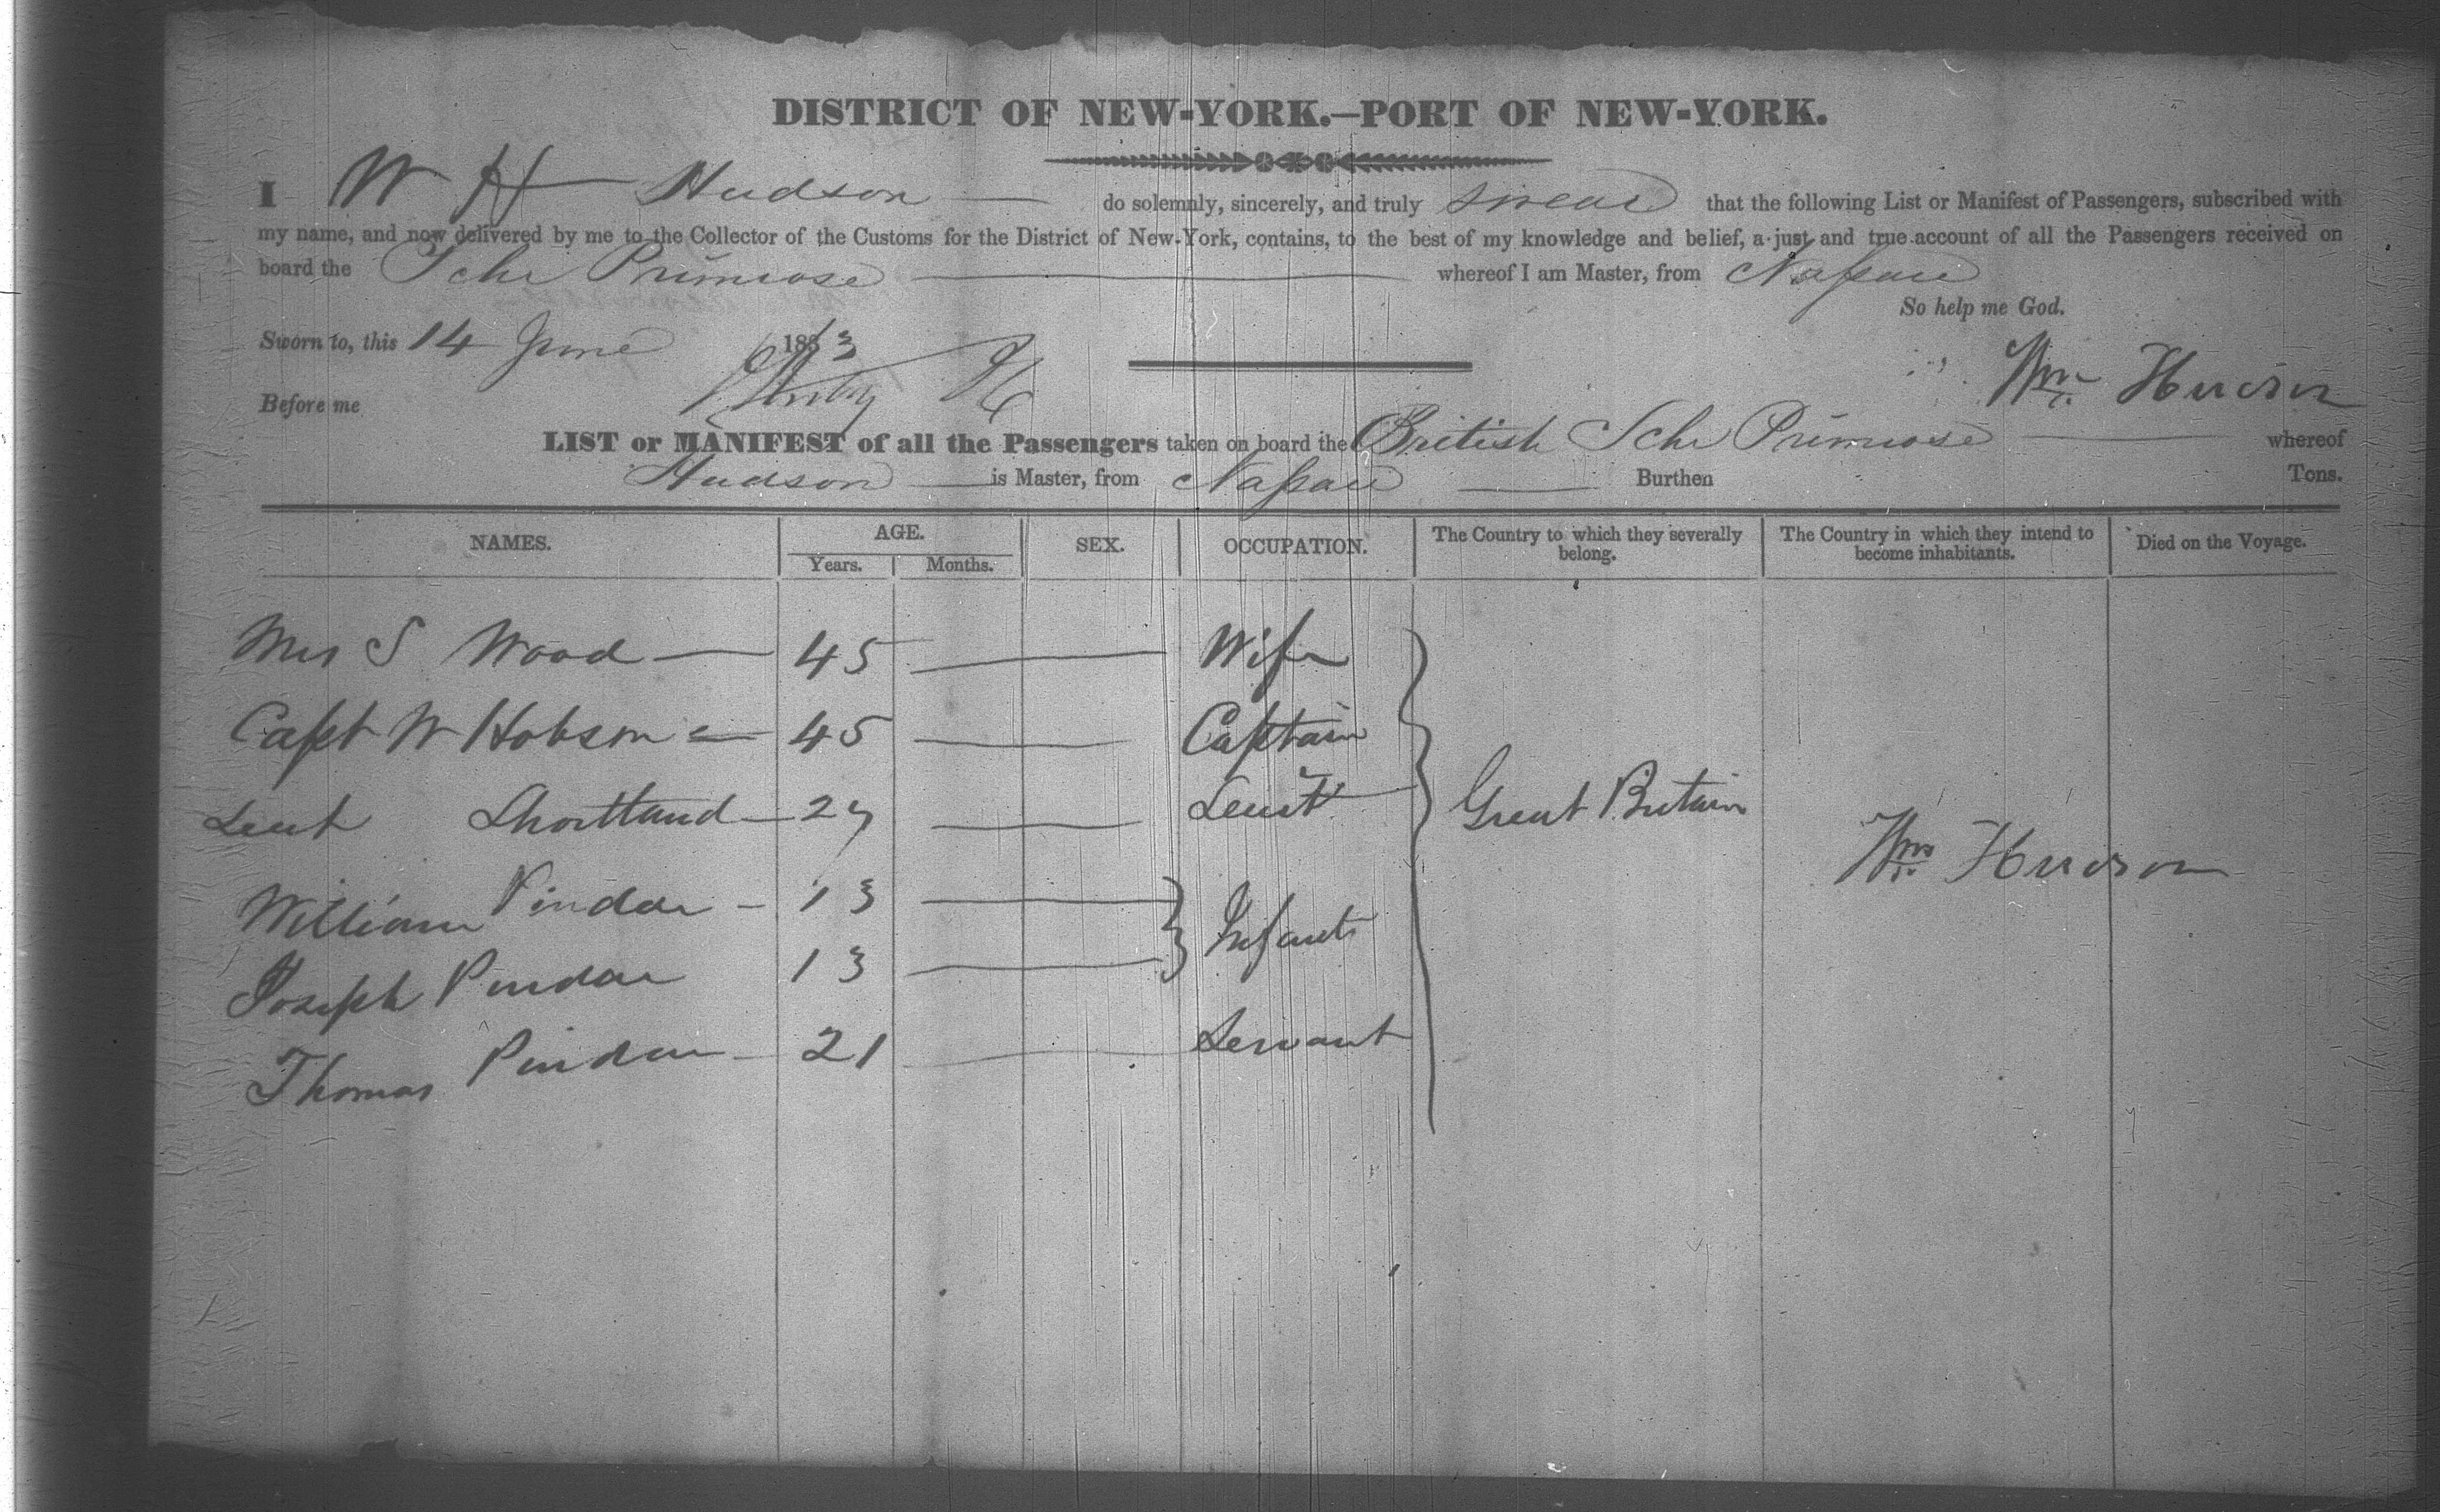 DISTRICT OF NEW-YORK.—PORT OF NEW-YORK.
I W H Hudson do solemnly, sincerely, and truly swear that the following List or Manifest of Passengers, subscribed with
my name, and now delivered by me to the Collector of the Customs for the District of New-York, contains, to the best of my knowledge and belief, a just and true account of all the Passengers received on
board the Schr Primrose whereof I am Master, from Nassau
So help me God.
Sworn to, this 14 June 1853
Wm Hudson
Before me
LIST or MANIFEST of all the Passengers taken on board the British Schr Primrose whereof
Hudson is Master, from Nassau Burthen Tons.
NAMES. AGE. SEX. OCCUPATION. The Country to which they severally belong. The Country in which they intend to become inhabitants. Died on the Voyage.
Years. Months.
Mrs S Wood 45 Wife
Capt W Hobson 45 Captain
Leut Shortland 27 Leut
Great Britain
William Pindar 13 Infants
Wm Hudson
Joseph Pindar 13
Thomas Pindar 21 Servant